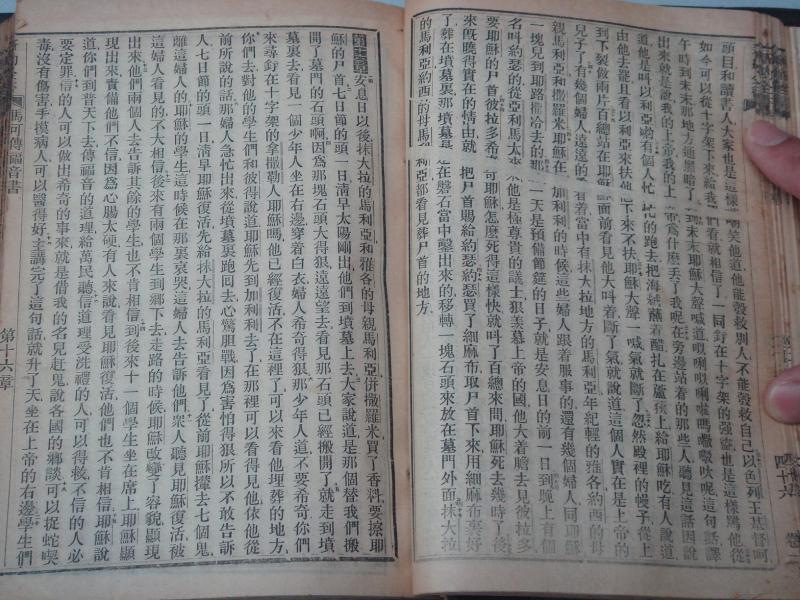 頭目和讀書人大家也是這樣嘲笑他道他能彀救別人不能彀救自己以色列王基督呵
如今可以從十字架下來給我們看就相信了一同釘在十字架的強盜也是這樣罵他從
午時到末末那地方通通暗了到末末耶穌大聲喊道
出來就是說我的上帝我的上帝爲什麼丟了我呢在旁邊站着的那些人聽見這話因說
道他是叫以利亞喲有個人忙忙的跑去把海絨蘸着醋扎在蘆葦上給耶穌吃有人說道
由他去罷且看以利亞來扶他下來不扶耶穌大聲一喊氣就斷了忽然殿裡的幔子從上
到下裂做兩片百總站在耶穌面前看見他大叫着斷了氣就說道這個人實在是上帝的
兒子了有幾個婦人遠遠的看着當中有抹大拉地方的馬利亞年紀輕的雅各約西的母
親馬利亞和撒羅米耶穌在加利利的時候這些婦人跟着服事的還有幾個婦人同耶穌
一塊兒到耶路撒冷去的那一天是預備節筵的日子就是安息日的前一日到晚上有個
名叫約瑟的從亞利馬太來他是極尊貴的議士狠羨慕上帝的國他大着膽去見彼拉多
要耶穌的尸首彼拉多希奇耶穌怎麼死得這樣快就叫了百總來問耶穌死去幾時了後
來旣曉得實在的情由就把尸首賜給約瑟約瑟買了細麻布取尸首下來用細麻布裹好
了葬在墳墓裏那墳墓是在磐石當中鑿出來的移轉一塊石頭來放在墓門外面抹大拉
的馬利亞約西的母馬利亞都看見葬尸首的地方
第十六章安息日以後抹大拉的馬利亞和雅各的母親馬利亞併撒羅米買了香料要擦耶
穌的尸首七日節的頭一日淸早太陽剛出他們到墳墓上去大家說道是那個替我們搬
開了墓門的石頭啊因爲那塊石頭大得狠遠遠望去看見那石頭已經搬開了就走到墳
墓裏去看見一個少年人坐在右邊穿着白衣婦人希奇得狠那少年人道不要希奇你們
來尋釘在十字架的拿撒勒人耶穌嗎他已經復活不在這裡了可以來看他埋葬的地方
你們去對他的學生們和彼得說道耶穌先到加利利去了在那裡可以看得見他依他從
前所說的話那婦人急忙出來從墳墓裏跑回去心驚胆戰因爲害怕得狠所以不敢告訴
人七日節的頭一日淸早耶穌復活先給抹大拉的馬利亞看見了從前耶穌攆去七個鬼
離這婦人的耶穌的學生這時候在那裏哀哭這婦人去告訴他們衆人聽見耶穌復活被
這婦人看見的不大相信後來有兩個學生到鄉下去走路的時候耶穌改變了容貌顯現
出來他們兩個人去告訴其餘的學生也不肯相信到後來十一個學生坐在席上耶穌顯
現出來責備他們不信因爲心腸太硬有人來說看見耶穌復活他們也不肯相信耶穌說
道你們到普天下去傳福音的道理給萬民聽信道理受洗禮的人可以得救不信的人必
要定罪信的人可以做出希奇的事來就是借我的名兒赶鬼說各國的鄉談可以捉蛇喫
毒沒有傷害手摸病人可以醫得好主講完了這句話就升了天坐在上帝的右邊學生們
馬可傳福音書
第十六章